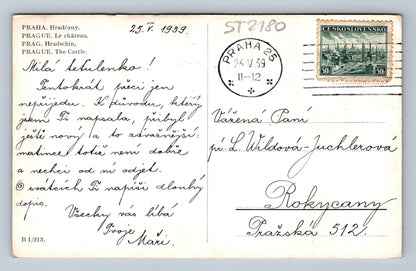 PRAHA. Hradčany.
PRAGUE. Le château.
PRAG. Hradschin.
PRAGUE. The Castle.
25. V. 1939.
ST2180
PRAHA 25
26. V. 39
11-12
ČESKO-SLOVENSKO
50 50
Milá tetulenko!
Tentokrát přeci jen
nepřijedu. K důvodu, který
jsem Ti napsala, přibyl
ještě nový a to závažnější:
mamince totiž není dobře
a nechci od ní odjet.
O svátcích Ti napíši dlouhý
dopis.
Všecky vás líbá
Tvoje
Máři.
Vážená Paní
pí L. Wildová-Juchlerová
Rokycany
Pražská 512.
B 1/213.